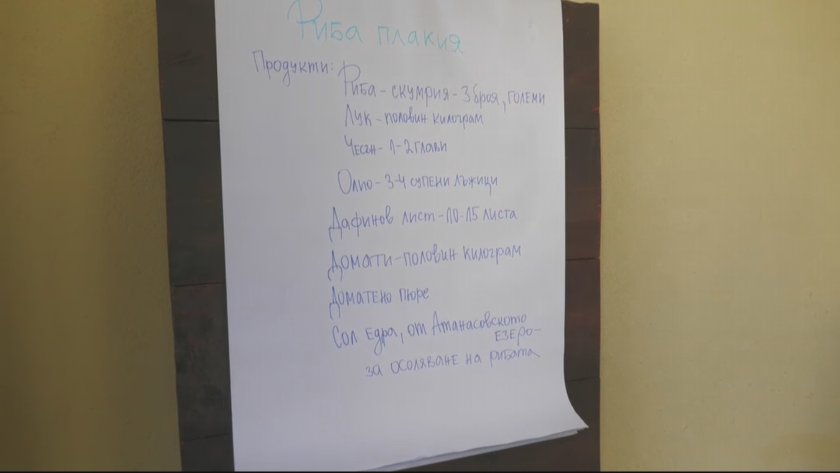 Риба плакия
Продукти:
Риба - скумрия - 3 броя, големи
Лук - половин килограм
Чесън - 1-2 глави
Олио - 3-4 супени лъжици
Дафинов лист - 10-15 листа
Домати - половин килограм
Доматено пюре
Сол едра, от Атанасовското
езеро -
за осоляване на рибата